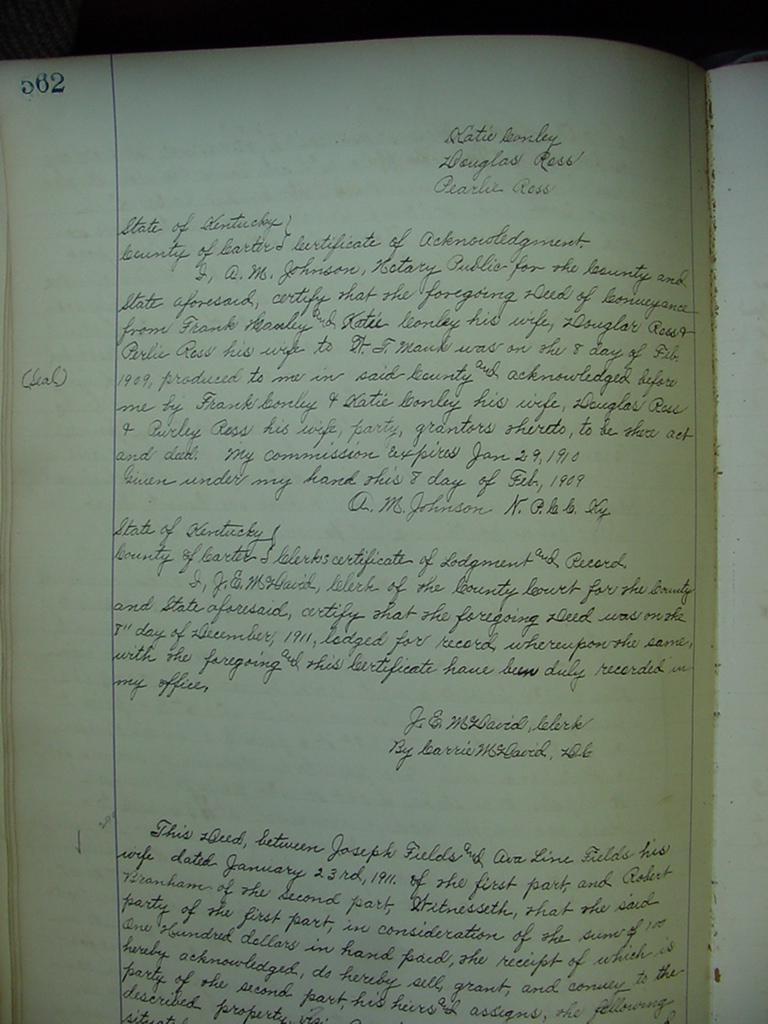 562
Katie Conley
Douglas Ross
Pearlie Ross
State of Kentucky
County of Carter Certificate of Acknowledgment.
I, A. M. Johnson, Notary Public for the County and
State aforesaid, certify that the foregoing Deed of Conveyance
from Frank and Katie Conley his wife, Douglar Ross &
Perlie Ross his wife to T. Mauk was on the 8 day of Feb.
1909, produced to me in said County and acknowledged before
(Seal)
me by Frank Conley & Katie Conley his wife, Douglas Ross
& Purley Ross his wife, party, grantors thereto, to be there act
and deed. My commission expires Jan 29, 1910
Given under my hand this 8 day of Feb, 1909
A. M. Johnson N. P. C. C. Ky
State of Kentucky
County of Carter Clerks certificate of Lodgment and Record.
I, J. E. McDavid, Clerk of the County Court for the County
and State aforesaid, certify that the foregoing Deed was on the
8" day of December, 1911, lodged for record, whereupon the same,
with the foregoing and this Certificate have been duly recorded in
my office,
J. E. McDavid, Clerk
By Carrie McDavid, D.C
This Deed, between Joseph Fields and Ava Line Fields his
wife dated January 23rd, 1911. of the first part, and Robert
Branham of the second part, Witnesseth, that the said
party of the first part, in consideration of the sum of
One Hundred dollars in hand paid, the receipt of which is
hereby acknowledged, do hereby sell, grant, and convey to the
party of the second part, his heirs and assigns, the following
described property, viz: